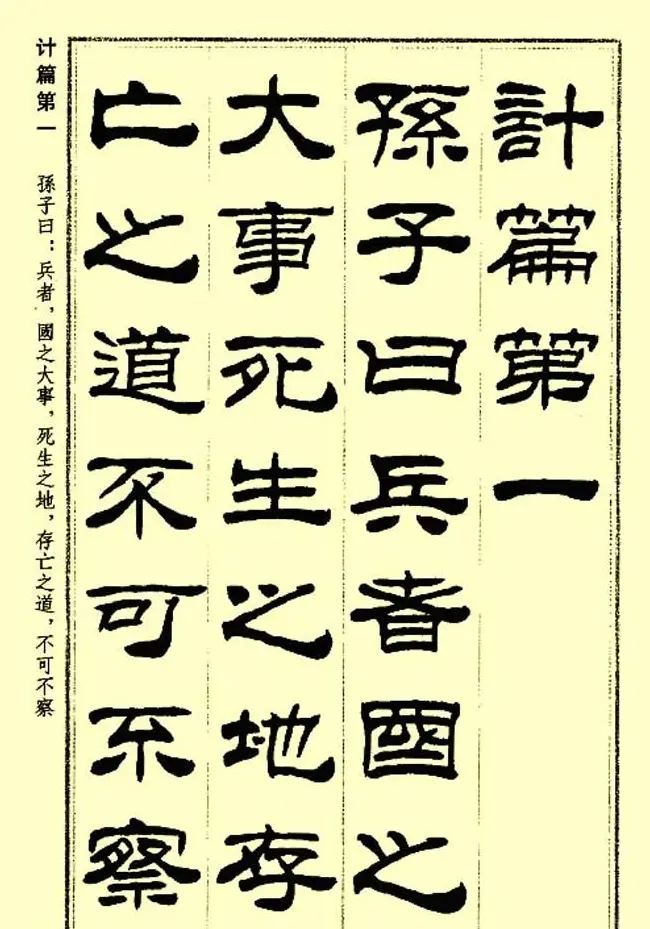 計篇第一
孫子曰兵者國之
大事死生之地存
亡之道不可不察
计篇第一 孫子曰：兵者，國之大事，死生之地，存亡之道，不可不察